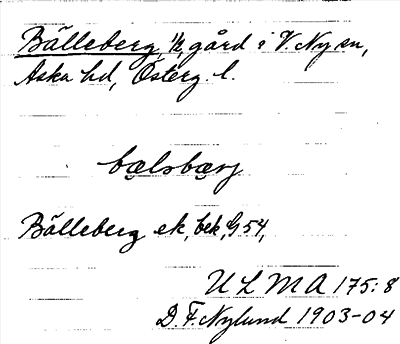 Bälleberg, 1/2 gård i V. Ny sn,
Aska hd, Österg. l.
bælsbærj
Bälleberg ek, bek, G 54,
ULMA 175:8
D. F. Nylund 1903-04